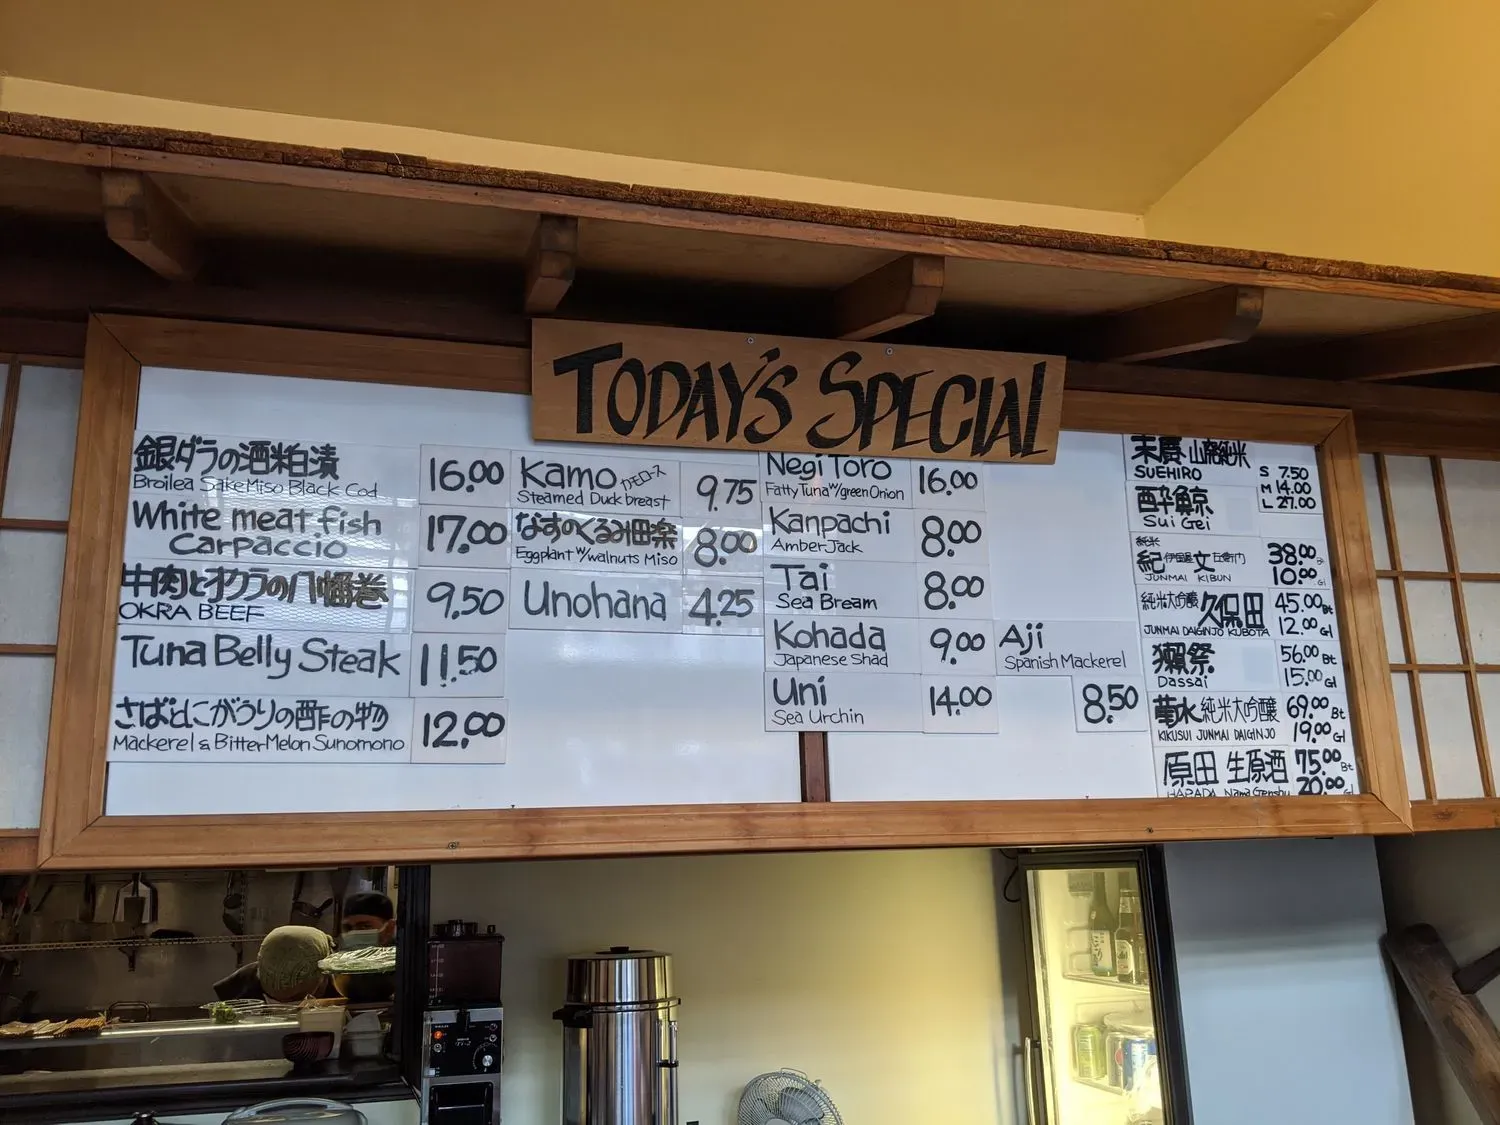 TODAY'S SPECIAL
銀ダラの酒粕漬 16.00
Broilea Sake Miso Black Cod
White meat fish 17.00
Carpaccio
牛肉とオクラの八幡巻 9.50
OKRA BEEF
Tuna Belly Steak 11.50
さばとにがうりの酢の物 12.00
Mackerel & Bitter Melon Sunomono
Kamo 9.75
Steamed Duck breast
なすのくるみ田楽 8.00
Eggplant w/walnuts Miso
Unohana 4.25
Negi Toro 16.00
Fatty Tuna w/green Onion
Kanpachi 8.00
Amber Jack
Tai 8.00
Sea Bream
Kohada 9.00
Japanese Shad
Uni 14.00
Sea Urchin
Aji
Spanish Mackerel
8.50
末廣 山廃純米
SUEHIRO
S 7.50
M 14.00
L 27.00
酔鯨
Sui Gei
純米
紀伊国屋文左衛門 38.00 Bt
JUNMAI KIBUN 10.00 Gl
純米大吟醸 久保田 45.00 Bt
JUNMAI DAIGINJO KUBOTA 12.00 Gl
獺祭 56.00 Bt
Dassai 15.00 Gl
菊水 純米大吟醸 69.00 Bt
KIKUSUI JUNMAI DAIGINJO 19.00 Gl
原田 生原酒 75.00 Bt
HARADA Nama Genshu 20.00 Gl